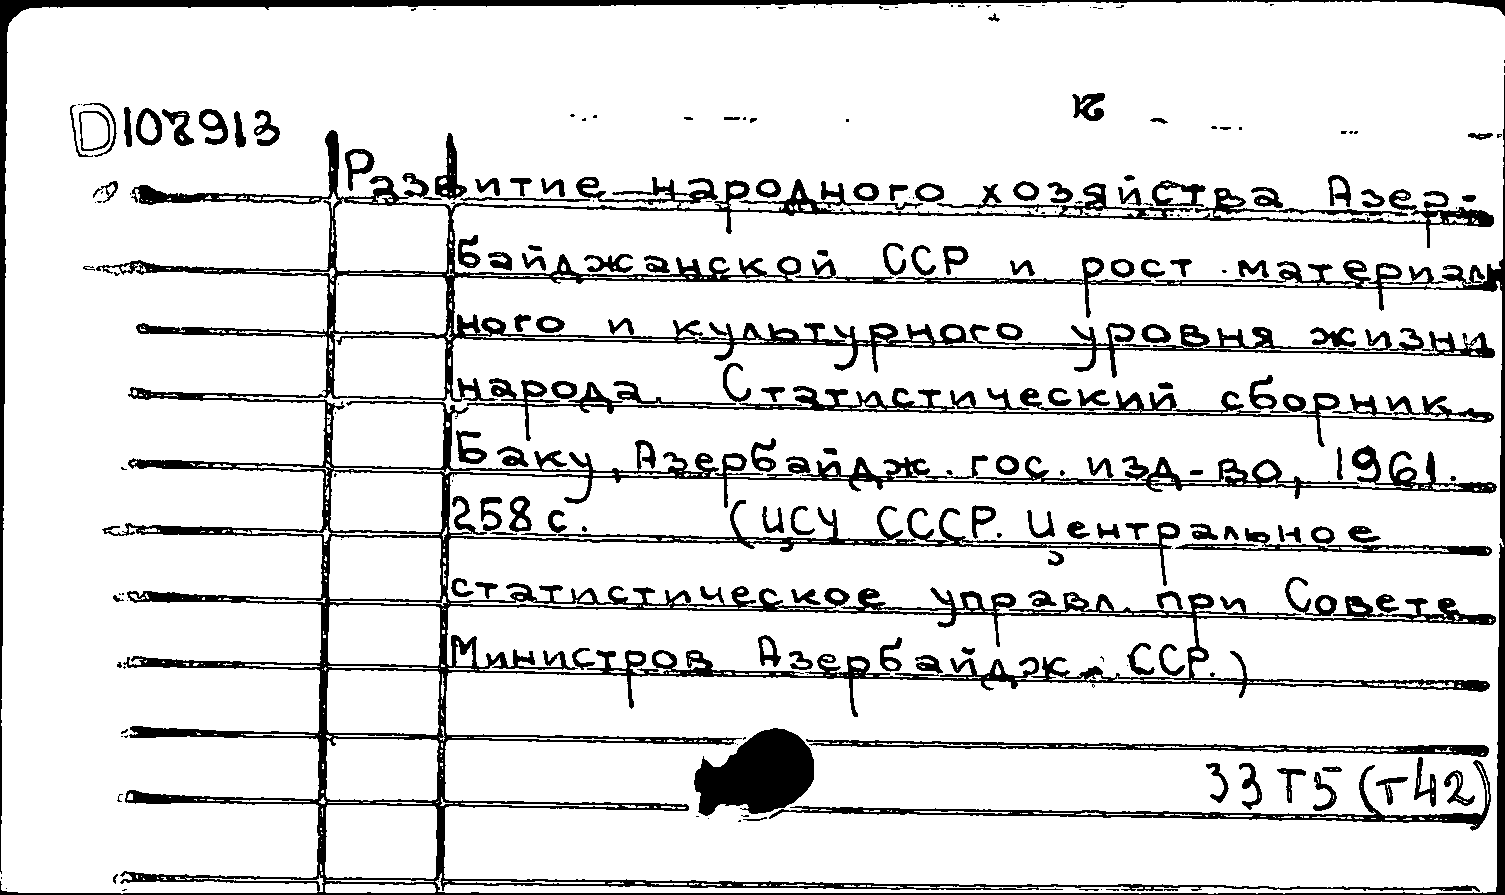 D108913
Развитие народного хозяйства Азер-
байджанской ССР и рост материаль
ного и культурного уровня жизни
народа. Статистический сборник.
Баку, Азербайдж. гос. изд-во, 1961.
258 с. (ЦСУ СССР. Центральное
статистическое управл. при Совете
Министров Азербайдж. ССР.)
33Т5(Т42)